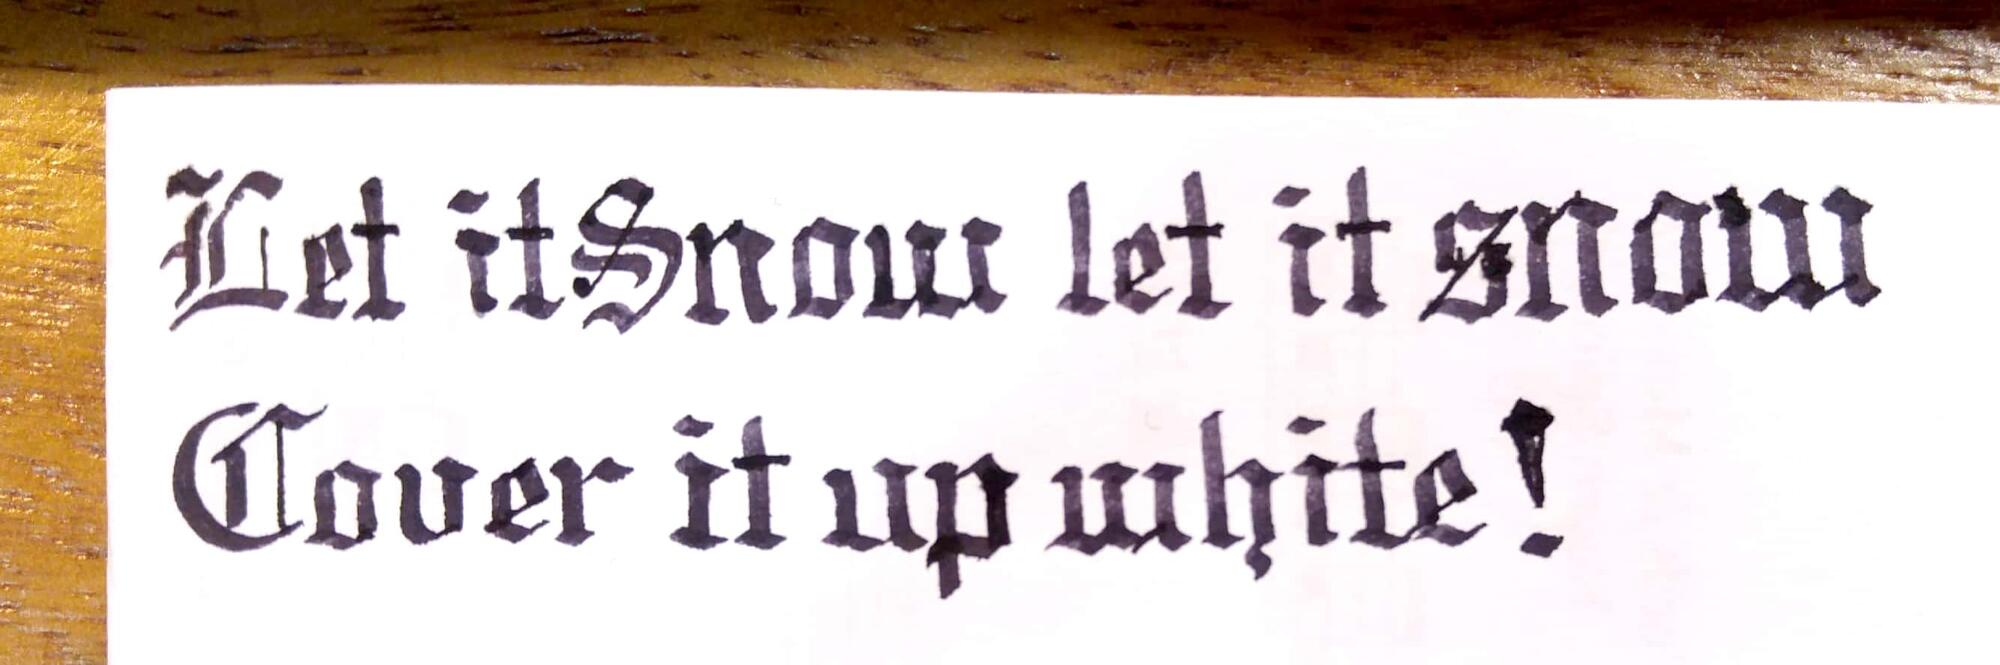 Let it Snow let it snow
Cover it up white!